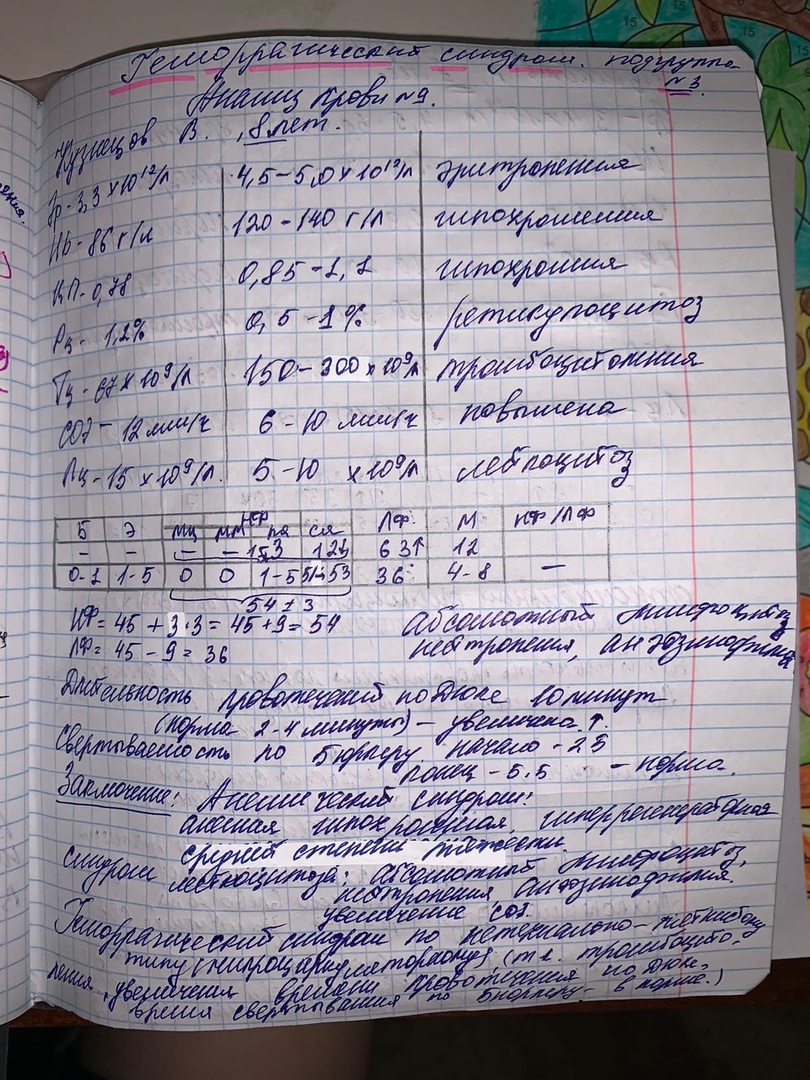 Геморрагический синдром. подгруппа
№3
Анализ крови №9.
Кузнецов В. , 8 лет.
Эр-3,3×10¹²/л 4,5-5,0×10¹²/л эритропения
Hb-86 г/л 120-140 г/л гипохромемия
ЦП-0,78 0,85-1,1 гипохромия
Рц- 1,2% 0,5-1% ретикулоцитоз
Тц-67×10⁹/л 150-300×10⁹/л тромбоцитопения
СОЭ- 12 мм/ч 6-10 мм/ч повышена
Лц-15×10⁹/л 5-10 ×10⁹/л лейкоцитоз
НФ
Б Э мц мм пя ся ЛФ. М НФ/ЛФ
- - - - 12↓ 63↑ 12
0-1 1-5 0 0 1-5 36 4-8 -
54±3
НФ=45+3·3=45+9=54 абсолютный лимфоцитоз
ЛФ=45-9=36 нейтропения, анэозинофилия
Длительность кровотечений по Дюке 10 минут
(норма 2-4 минуты) - увеличена ↑.
Свертываемость по Бюркеру начало-2.5
конец-5.5 - норма.
Заключение: Анемический синдром:
анемия гипохромная, гиперрегенераторная
средней степени тяжести.
Синдром лейкоцитоза: абсолютный лимфоцитоз,
нейтропения анэозинофилия.
увеличение СОЭ.
Геморрагический синдром по петехиально-пятнистому
типу (микроциркуляторному) (т.к. тромбоцито-
пения, увеличения времени кровотечения по Дюке,
время свертывания по Бюркеру- в норме.)